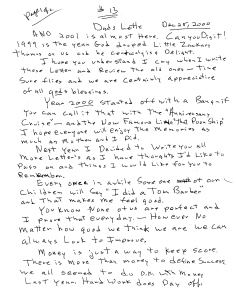 page 1 of 2
# 13
Dads Letter Dec 25, 2000
AND 2001 is almost Here. Can you Digit!
1999 is the year God droped Little Zachary
thomas on us and he Certainly is a Delight.
I hope you understand I cry when I write
these Letters and Review the old ones — Time
Sure flies and we are Certainly appreciative
of all gods blessings.
Year 2000 started off with a Bang if
You can call it that with The "Anniversary
Cruise" — and the Now Famous Post Ship
I hope everyone will Enjoy the Memories as
much as Mother and I Did.
Next Year I Decided to Write you all
More Letter's as I have thoughts I'd Like to
Pass on and things I would Like for you to
Remember.
Every once in awhile Some one of our
Children will Say I did a "Tom Barber"
and That makes me feel good.
You Know None of us are perfect and
I prove that everyday. — However No
Matter how good we Think we are we Can
always Look to Improve.
Money is just a way to keep score.
There is More than money to define Success
we all seemed to do O.K. with Money
Last Year. Hard Work does Pay off!